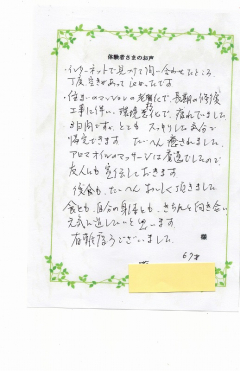 体験者さまのお声
・インターネットで見つけて問い合わせたところ
丁度空きがあって
・住まいのマンションの老朽化で、長期の修復
工事に伴い、環境悪化で、疲れていました
3日間ですが、とても スッキリした気分で
帰宅できます たいへん癒されました。
アロマオイルのマッサージは最適でしたので
友人にも宣伝しておきます
後食も、たいへんおいしく頂きました。
食とも、自分の身体とも、きちんと向き合い
元気に過したいと思います
有難うございました
様
67才